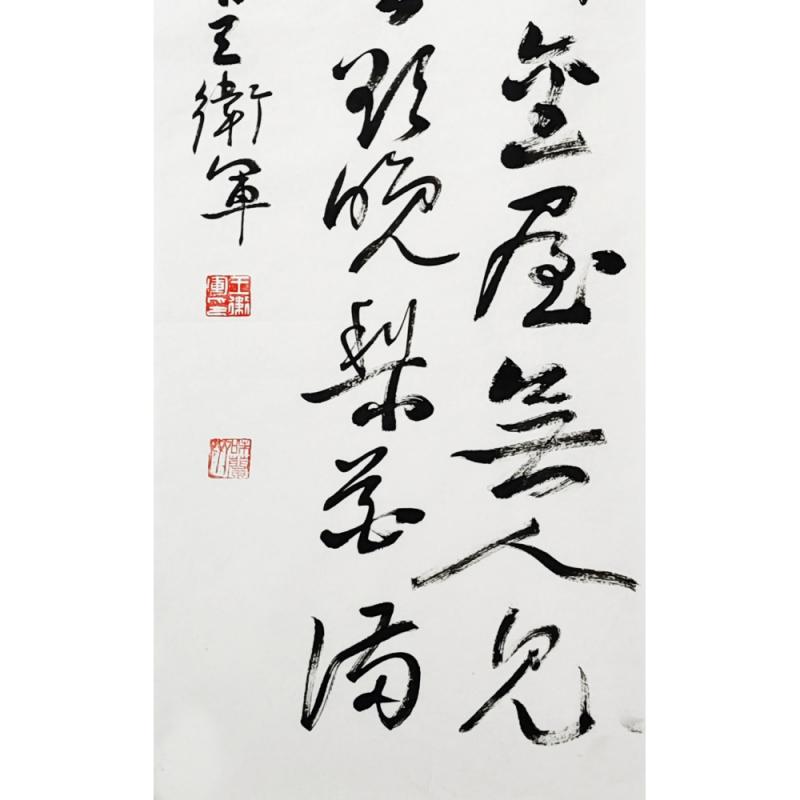 金屋無人見
欲晚梨花滿
王衛軍
王衛軍印